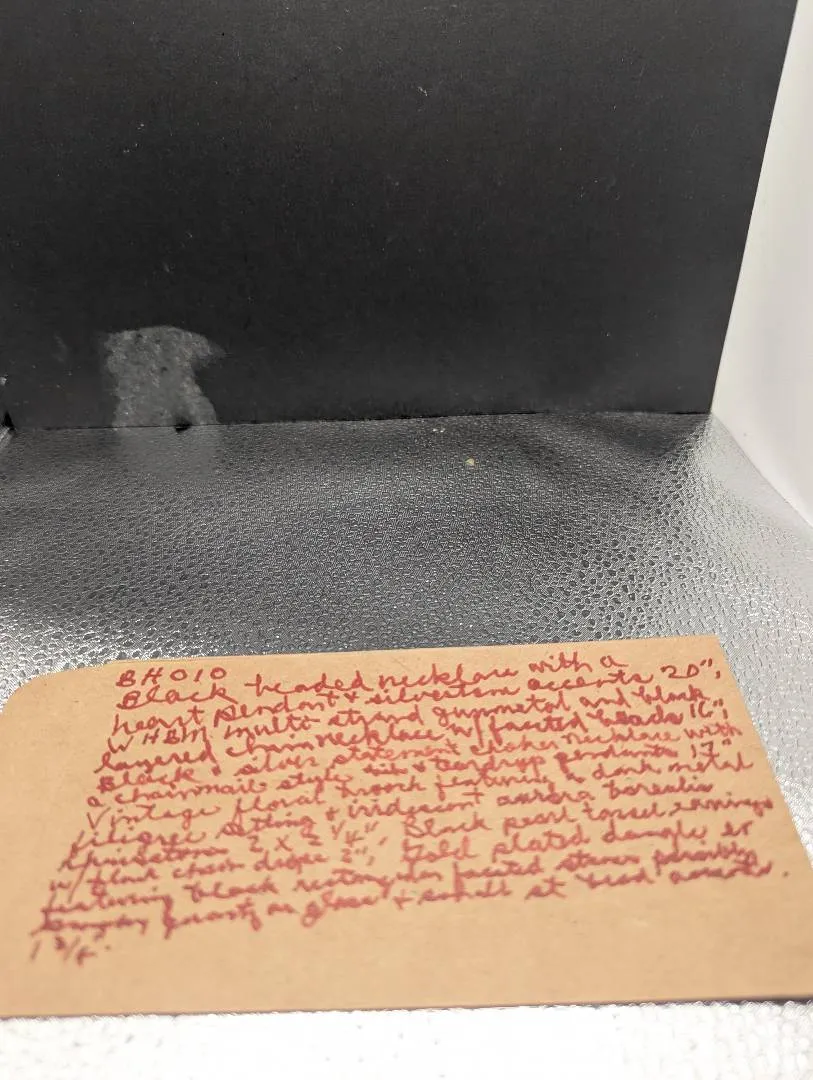 BH010
Black beaded necklace with a
heart pendant + silvertone accents 20",
WHBM multi strand gunmetal and black
layered chain necklace w/ faceted beads 16",
Black + silver statement choker necklace with
a chainmail style + teardrop pendants 17"
Vintage floral brooch featuring a dark metal
filigree setting + iridescent aurora borealis
rhinestones 2 x 2 1/4", Black pearl tassel earrings
w/ black chain 2", Gold plated dangle er
featuring black rectangular faceted stones possibly
quartz or glass + small bead accents.
1 3/4"